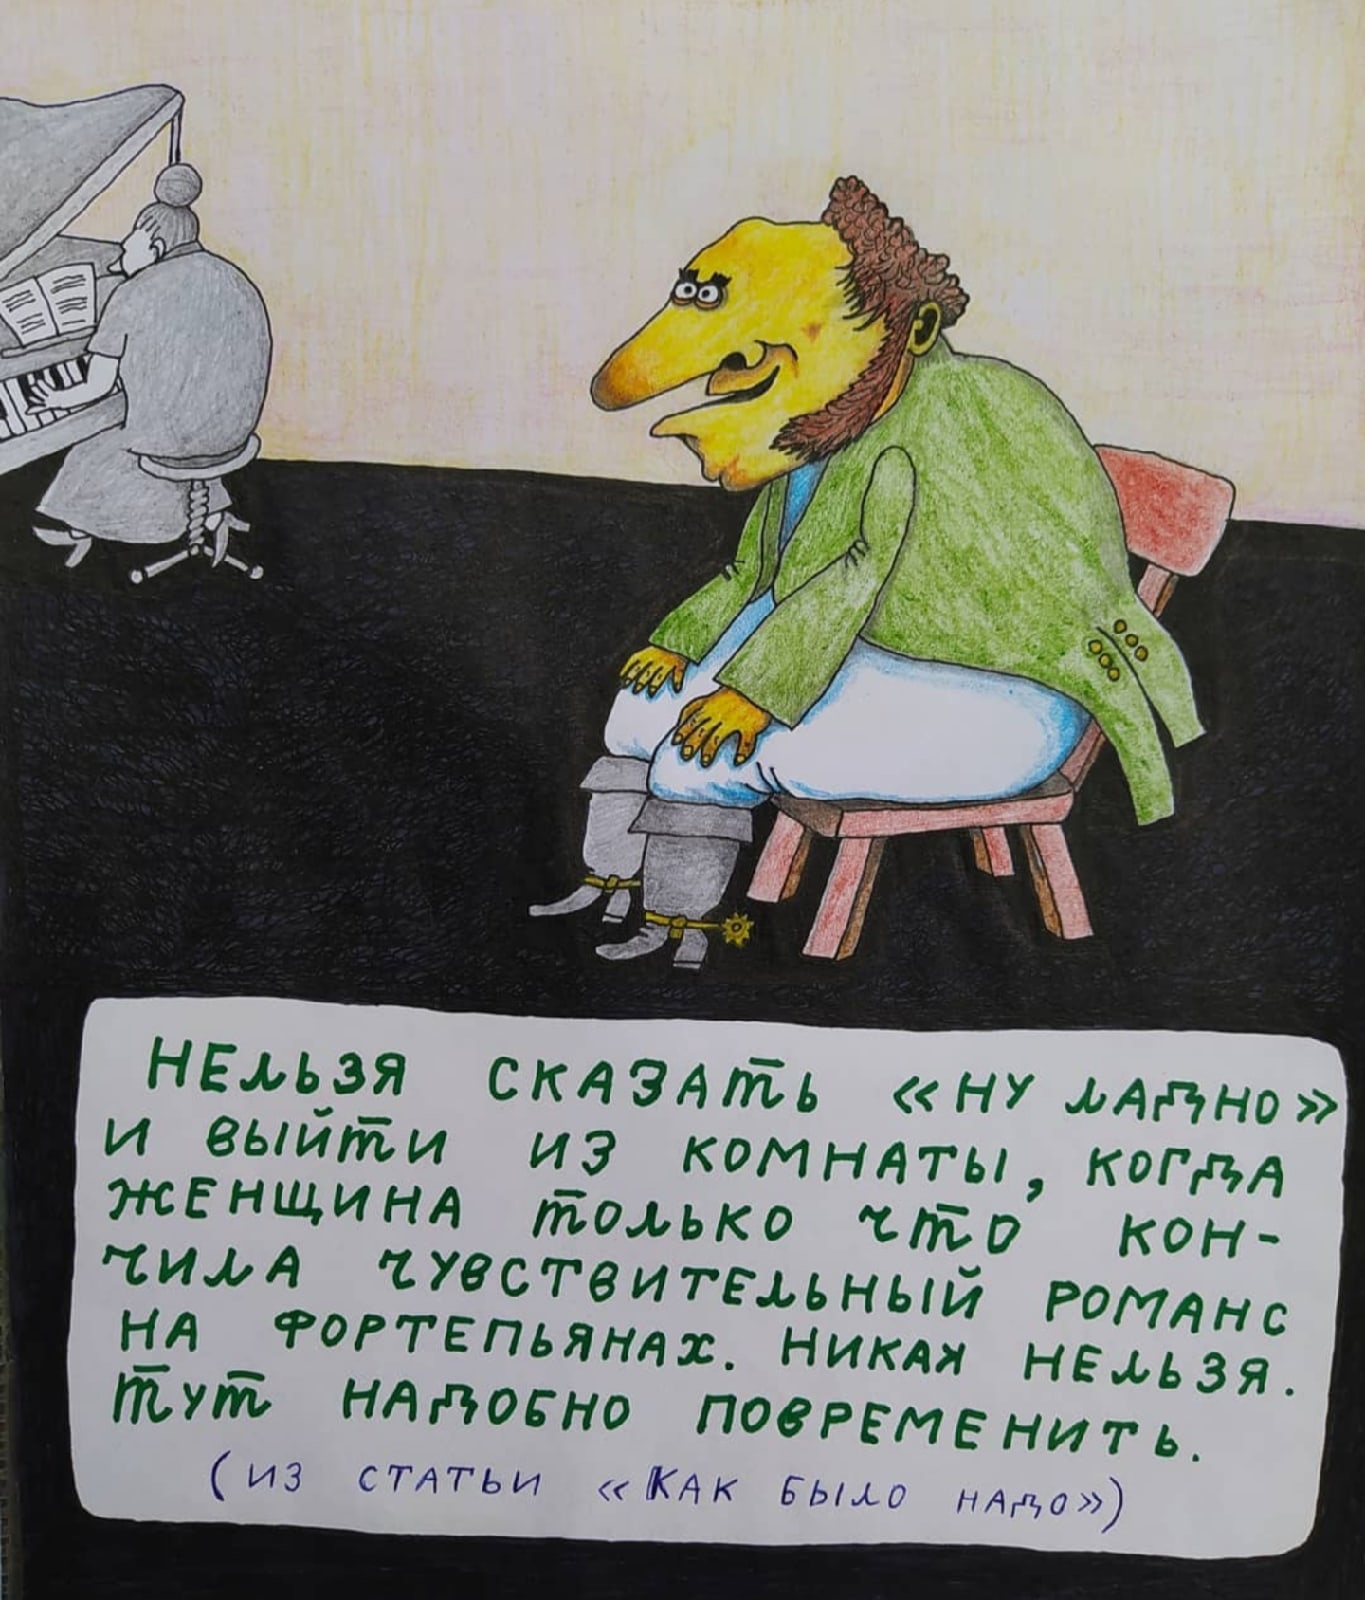 НЕЛЬЗЯ СКАЗАТЬ «НУ ЛАДНО»
И ВЫЙТИ ИЗ КОМНАТЫ, КОГДА
ЖЕНЩИНА ТОЛЬКО ЧТО КОН-
ЧИЛА ЧУВСТВИТЕЛЬНЫЙ РОМАНС
НА ФОРТЕПЬЯНАХ. НИКАК НЕЛЬЗЯ.
ТУТ НАДОБНО ПОВРЕМЕНИТЬ.
(ИЗ СТАТЬИ «КАК БЫЛО НАДО»)